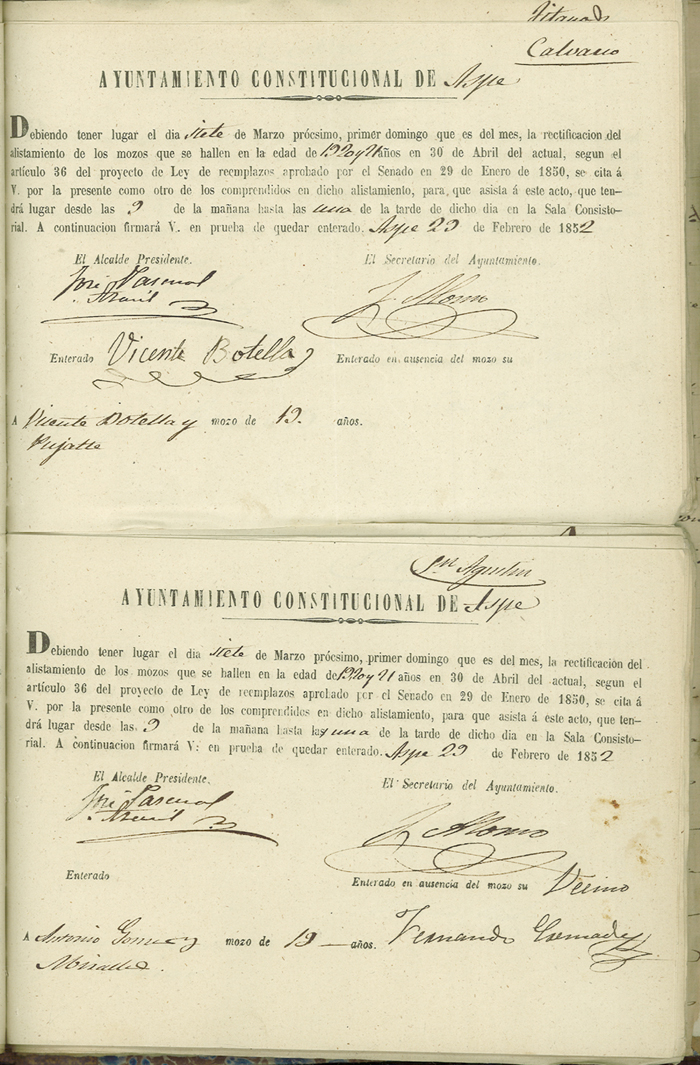 Calvario
AYUNTAMIENTO CONSTITUCIONAL DE Aspe
Debiendo tener lugar el dia siete de Marzo prócsimo, primer domingo que es del mes, la rectificacion del
alistamiento de los mozos que se hallen en la edad de 19 20 y 21 años en 30 de Abril del actual, segun el
artículo 36 del proyecto de Ley de reemplazos aprobado por el Senado en 29 de Enero de 1850, se cita á
V. por la presente como otro de los comprendidos en dicho alistamiento, para que asista á este acto, que ten-
drá lugar desde las 9 de la mañana hasta las una de la tarde de dicho dia en la Sala Consisto-
rial. A continuacion firmará V. en prueba de quedar enterado. Aspe 29 de Febrero de 1852
El Alcalde Presidente. El Secretario del Ayuntamiento.
José Pascual
Alonso
Enterado Vicente Botella Enterado en ausencia del mozo su
A Vicente Botella y mozo de 19. años.
Pujalte
Sn Agustin
AYUNTAMIENTO CONSTITUCIONAL DE Aspe
Debiendo tener lugar el dia siete de Marzo prócsimo, primer domingo que es del mes, la rectificación del
alistamiento de los mozos que se hallen en la edad de 19 20 y 21 años en 30 de Abril del actual, segun el
artículo 36 del proyecto de Ley de reemplazos aprobado por el Senado en 29 de Enero de 1850, se cita á
V. por la presente como otro de los comprendidos en dicho alistamiento, para que asista á este acto, que ten-
drá lugar desde las 9 de la mañana hasta las una de la tarde de dicho dia en la Sala Consisto-
rial. A continuacion firmará V. en prueba de quedar enterado. Aspe 29 de Febrero de 1852
El Alcalde Presidente. El Secretario del Ayuntamiento.
José Pascual
Alonso
Enterado Enterado en ausencia del mozo su Vecino
A Antonio Gomez y mozo de 19 años. Fernando
Miralles